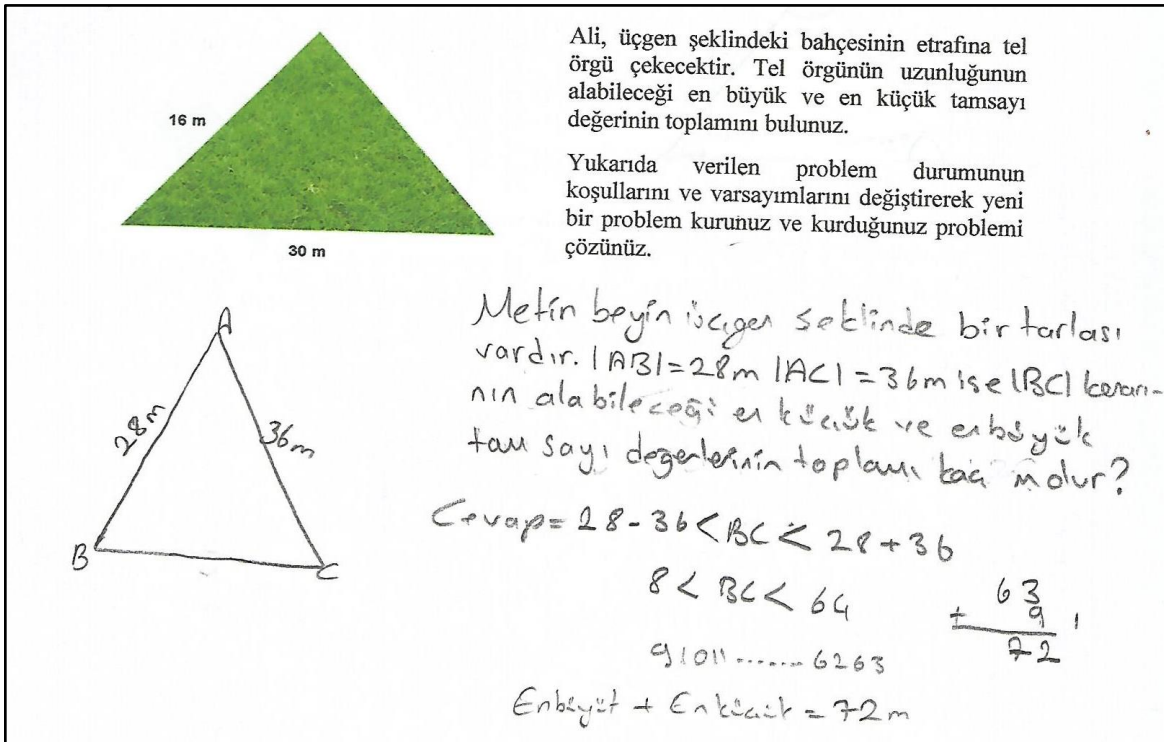 16 m
30 m
Ali, üçgen şeklindeki bahçesinin etrafına tel
örgü çekecektir. Tel örgünün uzunluğunun
alabileceği en büyük ve en küçük tamsayı
değerinin toplamını bulunuz.
Yukarıda verilen problem durumunun
koşullarını ve varsayımlarını değiştirerek yeni
bir problem kurunuz ve kurduğunuz problemi
çözünüz.
A
28m
36m
B
C
Metin beyin üçgen şeklinde bir tarlası
vardır. |AB|=28m |AC|=36m ise |BC| kenarı-
nın alabileceği en küçük ve en büyük
tam sayı değerlerinin toplamı kaç m olur?
Cevap= 28-36 < BC < 28+36
8 < BC < 64
9 10 11 ....... 62 63
63
+ 9
72
Enbüyük + Enküçük = 72m